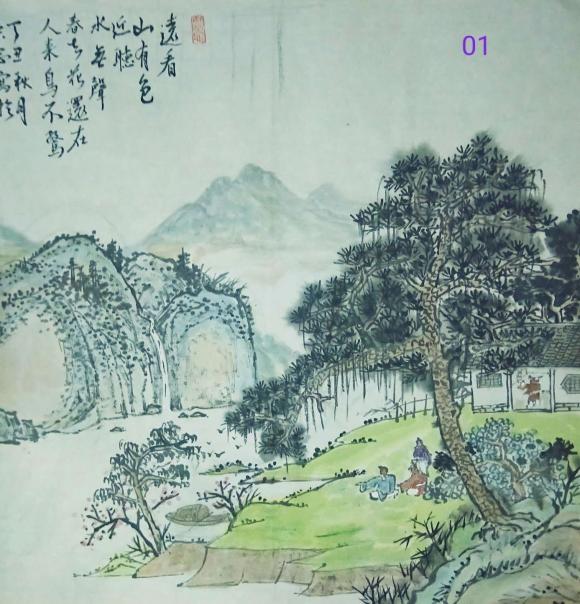 遠看
山有色
近聽
水無聲
春去花還在
人來鳥不驚
丁丑秋月
01